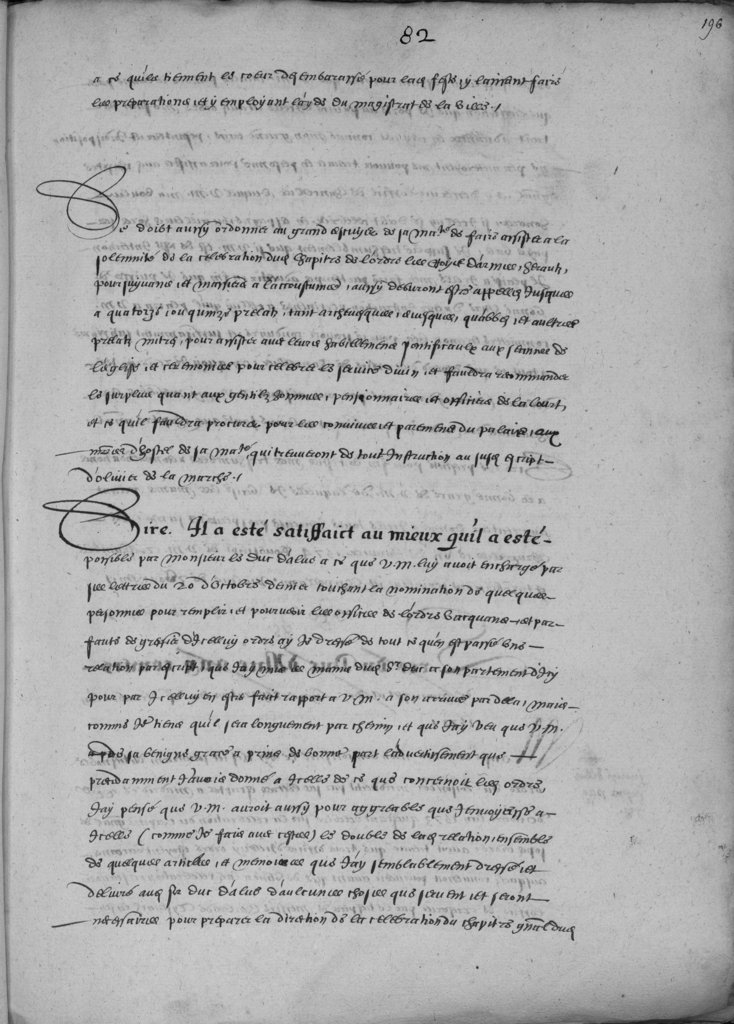 82
196
a ce quilz tiennent le coeur desembarassé pour lad. feste, y laissant faire
les preparations, et y employant l'ayde du magistrat de la ville./
Se doibt aussy ordonner au grand escuyer de sa Maté. de faire assister a la
solemnité de la celebration dud. chapitre de l'ordre les Roys d'armes, heraulx,
poursuyvans, et massiers a l'accoustumee, aussy debvront estre appellez jusques
a quatorze, ou quinze prelatz, tant archevesques, evesques, qu'abbez, et aultres
prelatz mitrez, pour assister avec leurs habillemens pontificaulx aux sceances de
l'eglise, et ceremonies pour celebrer le service divin, et fauldra recommander
le surplus quant aux gentilz hommes, pensionnaires, et officiers de la court,
et ce qu'il fauldra procurer pour les convives et paremens du palais, aux
mres d'hostel de sa Maté. qui treuveront de tout Instruction au susd. escript
d'olivier de la marche./
Sire. Il a esté satisfaict au mieux quil a esté
possible par monsieur le duc d'alve a ce que V.M. luy avoit enchargé par
ses lettres du 20 d'Octobre dernier touchant la nomination de quelques
personnes pour remplir, et pourveoir les offices de l'ordre vacquans, et par
faulte de greffier d'Icelluy ordre ay Je dressé de tout ce qu'en est passé une
relation par escript, que J'ay mis es mains dud. Sr. duc a son partement d'Icy
pour par Icelluy en estre faict rapport a V.M. a son arrivee par dela, mais
comme Je tiens quil sera longuement par chemin, et que J'ay veu que V.M.
a pde sa benigne grace a prins de bonne part l'advertissement que
precedamment J'avois donné a Icelle de ce que concernoit led. ordre,
J'ay pensé que V.M. auroit aussy pour aggreable que J'envoyasse a
Icelle (comme Je fais avec cestes) le double de lad. relation, ensemble
de quelques articles, et memoires que J'ay semblablement dressé, et
delivré aud. Sr. duc d'alve d'aulcunes choses que servent, et seront
necessaires pour preparer la direction de la celebration du chapitre gnal dud.